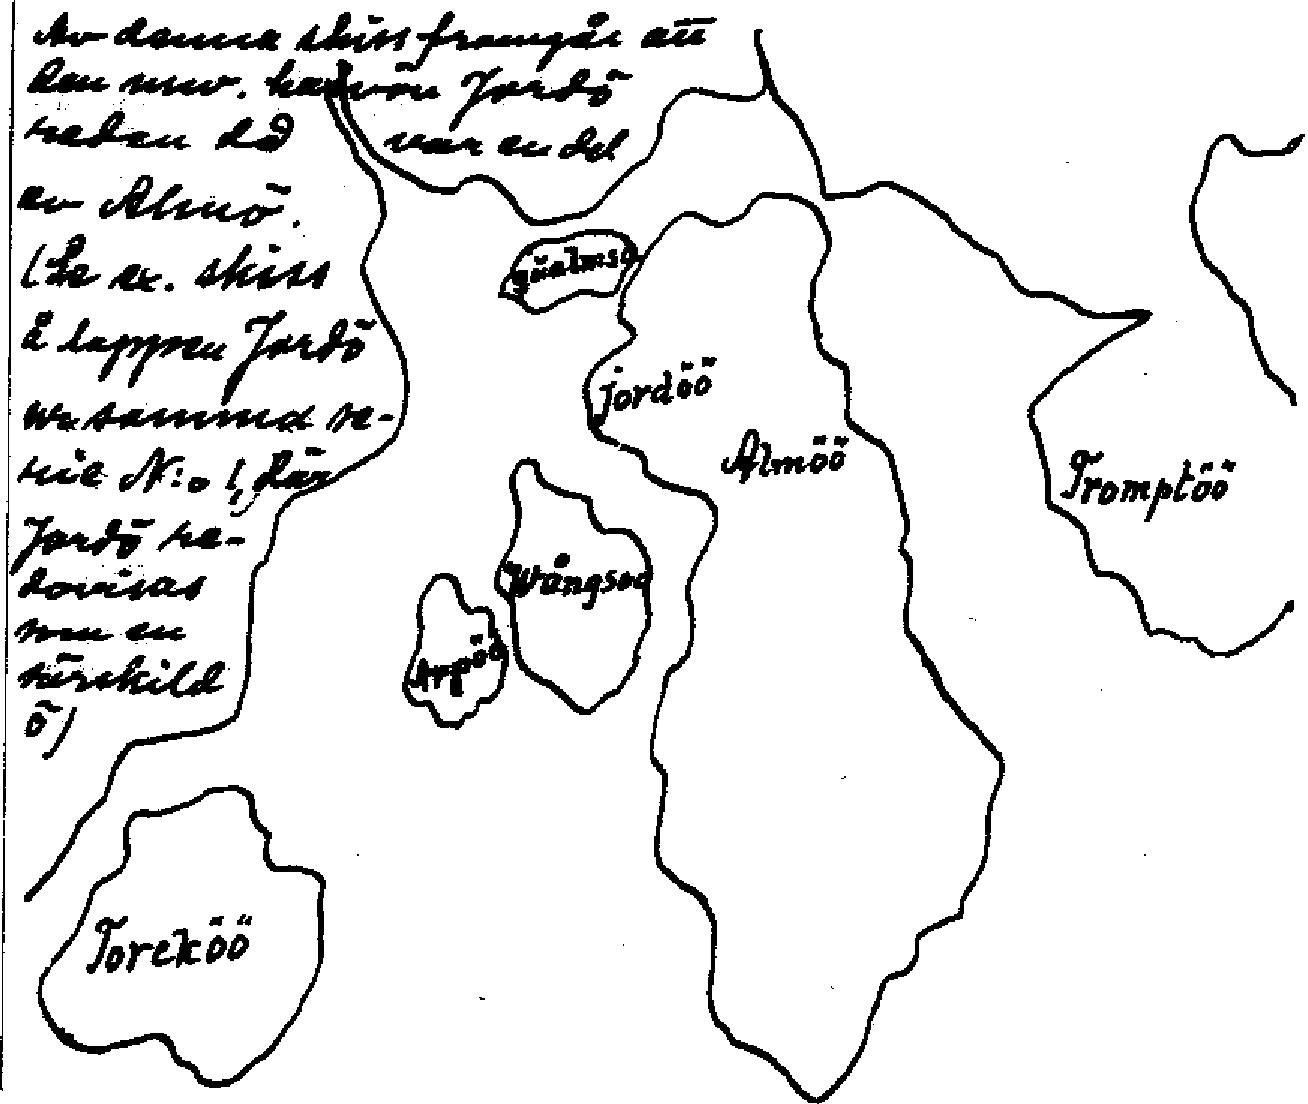 Av denna skiss framgår att
den nuv. halvön Jordö
redan då var en del
av Almö.
(Se ex. skiss
å lappen Jordö
ur samma se-
rie N:o 1, där
Jordö re-
dovisas
som en
särskild
ö)
gualmsö
jordöö
Almöö
Tromptöö
Wångsöö
Arpöö
Toreköö